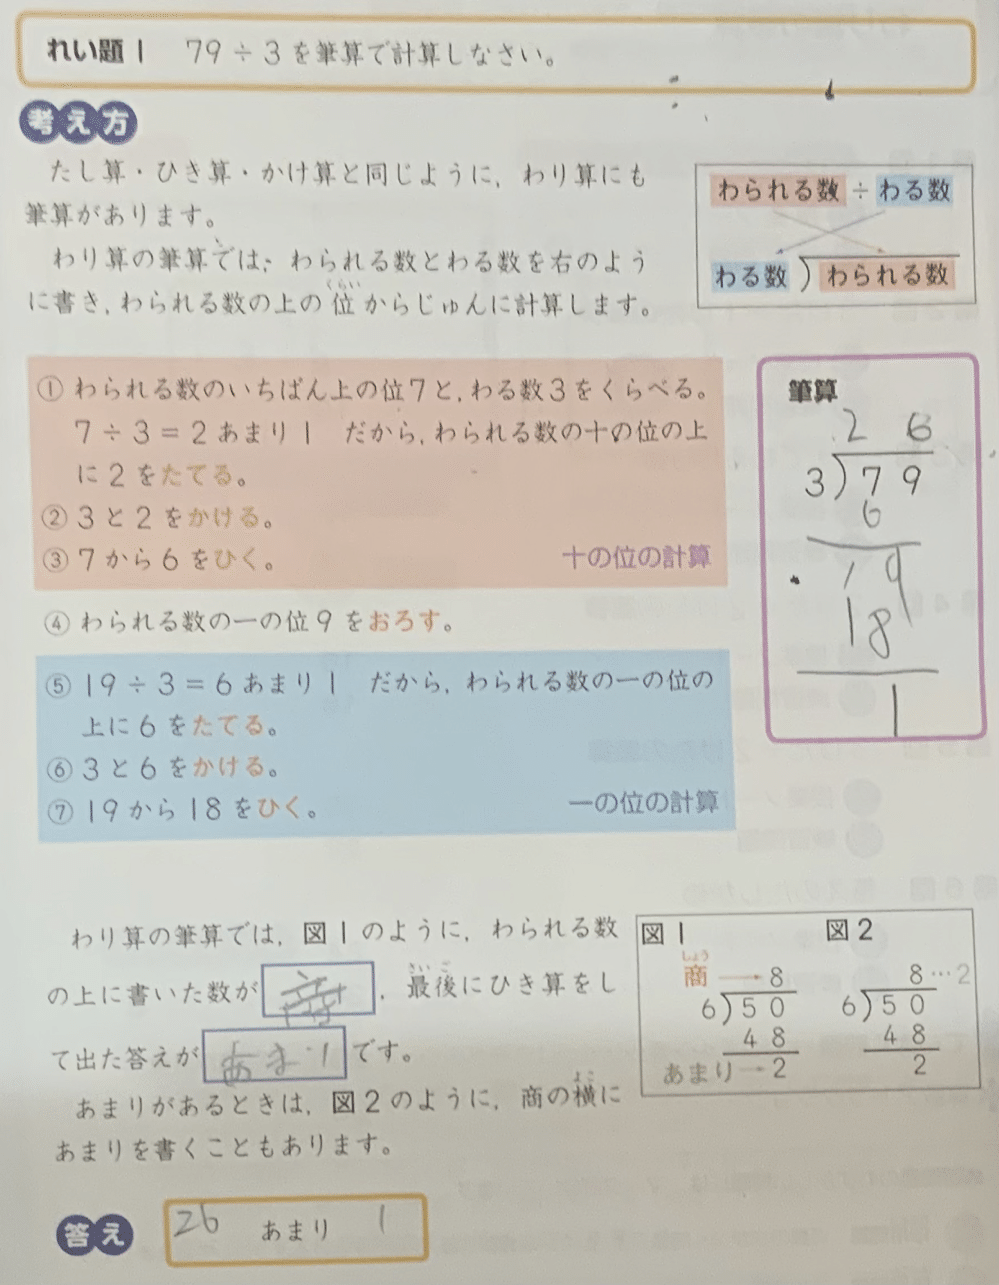 れい題1 79÷3を筆算で計算しなさい。
考え方
たし算・ひき算・かけ算と同じように，わり算にも
筆算があります。
わり算の筆算では，わられる数とわる数を右のよう
に書き，わられる数の上の位からじゅんに計算します。
くらい
わられる数÷わる数
わる数)わられる数
①わられる数のいちばん上の位7と，わる数3をくらべる。
7÷3=2あまり1 だから，わられる数の十の位の上
に2をたてる。
②3と2をかける。
③7から6をひく。
十の位の計算
④わられる数の一の位9をおろす。
⑤19÷3=6あまり1 だから，わられる数の一の位の
上に6をたてる。
⑥3と6をかける。
⑦19から18をひく。
一の位の計算
筆算
2 6
3)7 9
6
1 9
18
1
わり算の筆算では，図1のように，わられる数
の上に書いた数が
，最後にひき算をし
さいご
て出た答えが あまり です。
あまりがあるときは，図2のように，商の横に
よこ
あまりを書くこともあります。
図1
しょう
商→8
6)5 0
4 8
あまり→2
図2
8…2
6)5 0
4 8
2
答え
26 あまり 1